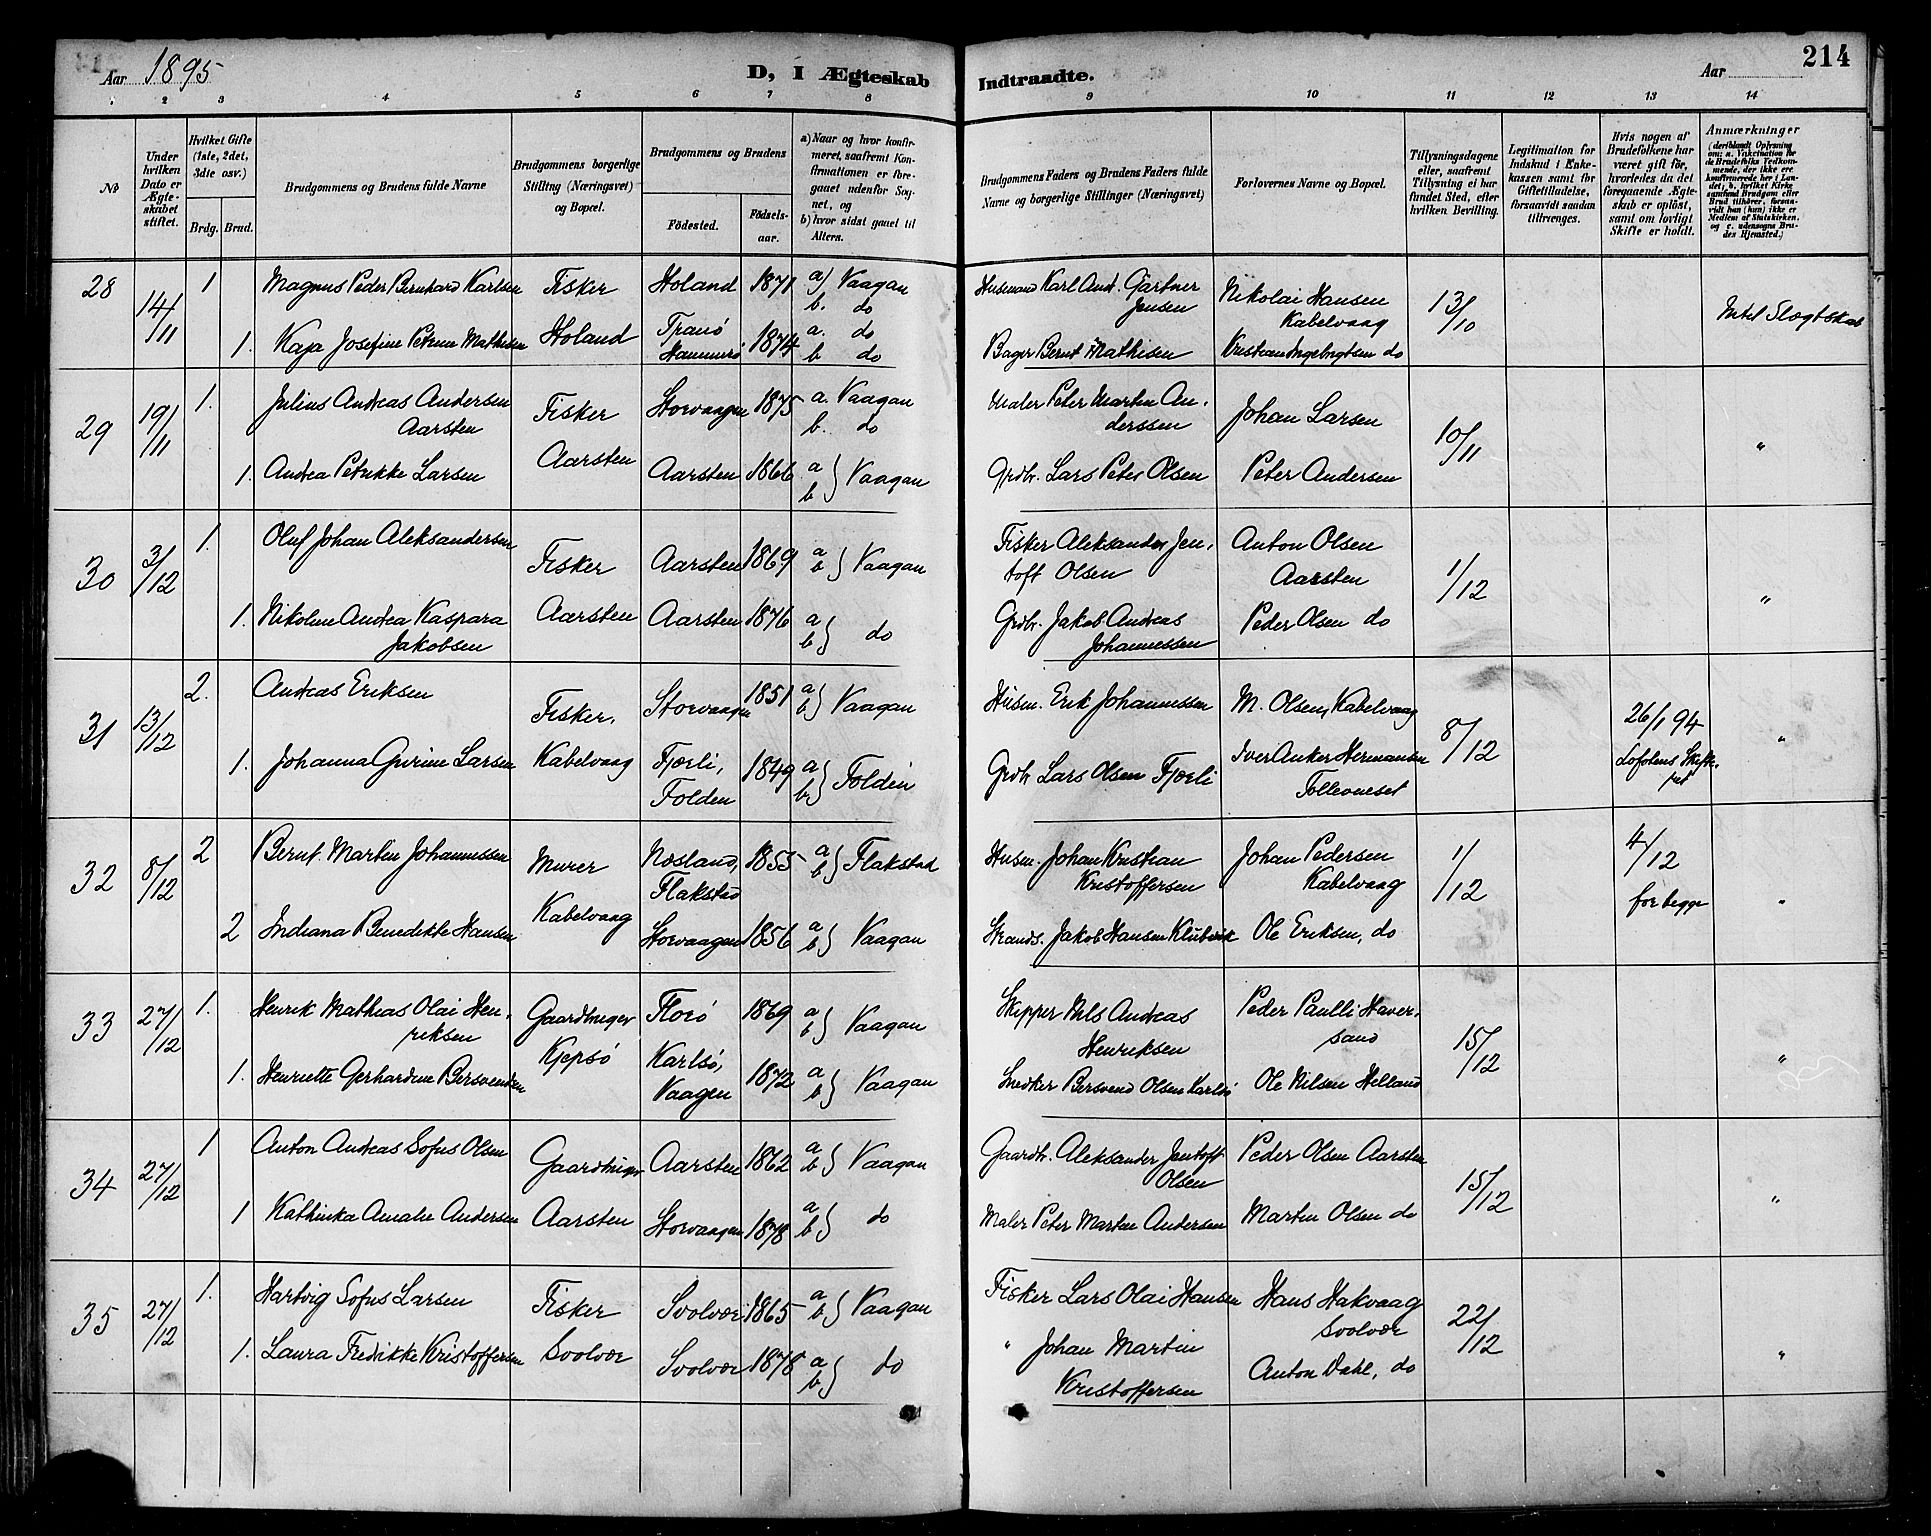 Aar 1895
D, I Ægteskab
Indtraadte.
Aar
214
1 2 3 4 5 6 7 8 9 10 11 12 13 14
No
Under hvilken Dato er Ægteskabet stiftet.
Hvilket Gifte (1ste, 2det, 3die osv.)
Brdg. Brud.
Brudgommens og Brudens fulde Navne
Brudgommens borgerlige Stilling (Næringsvei) og Bopæl.
Brudgommens og Brudens
Fødested.
Fødselsaar.
a) Naar og hvor konfirmeret, saafremt Konfirmationen er foregaaet udenfor Sognet, og
b) hvor sidst gaaet til Alters.
Brudgommens Faders og Brudens Faders fulde Navne og borgerlige Stillinger (Næringsvei)
Forlovernes Navne og Bopæl.
Tillysningsdagene eller, saafremt Tillysning ei har fundet Sted, efter hvilken Bevilling.
Legitimation for Indskud i Enkekassen samt for Giftetilladelse, forsaavidt saadan tiltrænges.
Hvis nogen af Brudefolkene har været gift før, hvorledes da det foregaaende Ægteskab er opløst, samt om lovligt Skifte er holdt.
Anmærkninger
28 14/11 1 Magnus Peder Bernhard Karlsen Fisker Holand 1871 a) Vaagan
b. do
Husmand Karl And. Gärtner
Jensen
Nikolai Hansen
Kabelvaag
13/10
Intet Slægtskab
1. Kaja Josefine Petrine Mathisen Holand Tranö
Hammerö 1874 a. do
b do
Bager Bernt Mathisen
Kristian Ingebrigtsen do
29 19/11 1. Julius Andreas Andersen
Aarsten
Fisker Storvaagen 1875 a Vaagan
b. do
Maler Peter Martin An-
derssen
Johan Larsen 10/11 "
1. Andrea Petrikke Larsen Aarsten Aarsten 1866 a
b } Vaagan
Grdbr. Lars Peter Olsen Peter Andersen
30 3/12 1. Oluf Johan Aleksandersen Fisker Aarsten 1869 a
b } Vaagan
Fisker Aleksander Jen-
toft Olsen
Anton Olsen
Aarsten
1/12 "
1. Nikoline Andrea Kaspara
Jakobsen
Aarsten Aarsten 1876 a
b } do
Grdbr. Jakob Andreas
Johannessen
Peder Olsen do
31 13/12 2. Andreas Eriksen Fisker, Storvaagen 1851 a
b } Vaagan
Husm. Erik Johannessen M. Olsen, Kabelvaag 8/12
26/1 94
Lofotens Skifte-
ret
"
1. Johanna Gurine Larsen Kabelvaag Fjærli,
Folden
1849 a
b } Folden
Grdbr Lars Olsen Fjærli Iver Anker Hermansen
32 8/12 2 Bernt Martin Johannessen Murer Næsland,
Flakstad
1855 a
b } Flakstad
Husm. Johan Kristian
Kristoffersen
Johan Pedersen
Kabelvaag
1/12
4/12
for begge
"
2 Indiana Benedikte Hansen Kabelvaag Storvaagen 1856 a
b } Vaagan
Strands. Jakob Hansen Klubvik Ole Eriksen, do
33 27/12 1. Henrik Mathias Olai Hen-
riksen
Gaardbruger Florö 1869 a
b } Vaagan
Skipper Nils Andreas
Henriksen
Peder Paulli Haver-
sand
15/12 "
1. Henriette Gerhardine Bersvendsen Kjepsö Karlsö,
Vaagen
1872 a
b } Vaagan
Snedker Bersvend Olsen Karlsö Ole Nilsen Helland
34 27/12 1 Anton Andreas Sofus Olsen Gaardbruger Aarsten 1862 a
b } Vaagan
Gaardbr. Aleksander Jentoft
Olsen
Peder Olsen Aarsten 15/12 "
1 Kathinka Amalie Andersen Aarsten Storvaagen 1878 a
b } do
Maler Peter Martin Andersen Martin Olsen do
35 27/12 1. Hartvig Sofus Larsen Fisker Svolvær 1865 a
b } Vaagan
Fisker Lars Olai Hansen Hans Hakvaag
Svolvær
22/12 "
1. Laura Fredrikke Kristoffersen Svolvær Svolvær 1878 a
b } do
" Johan Martin
Kristoffersen
Anton Dahl, do